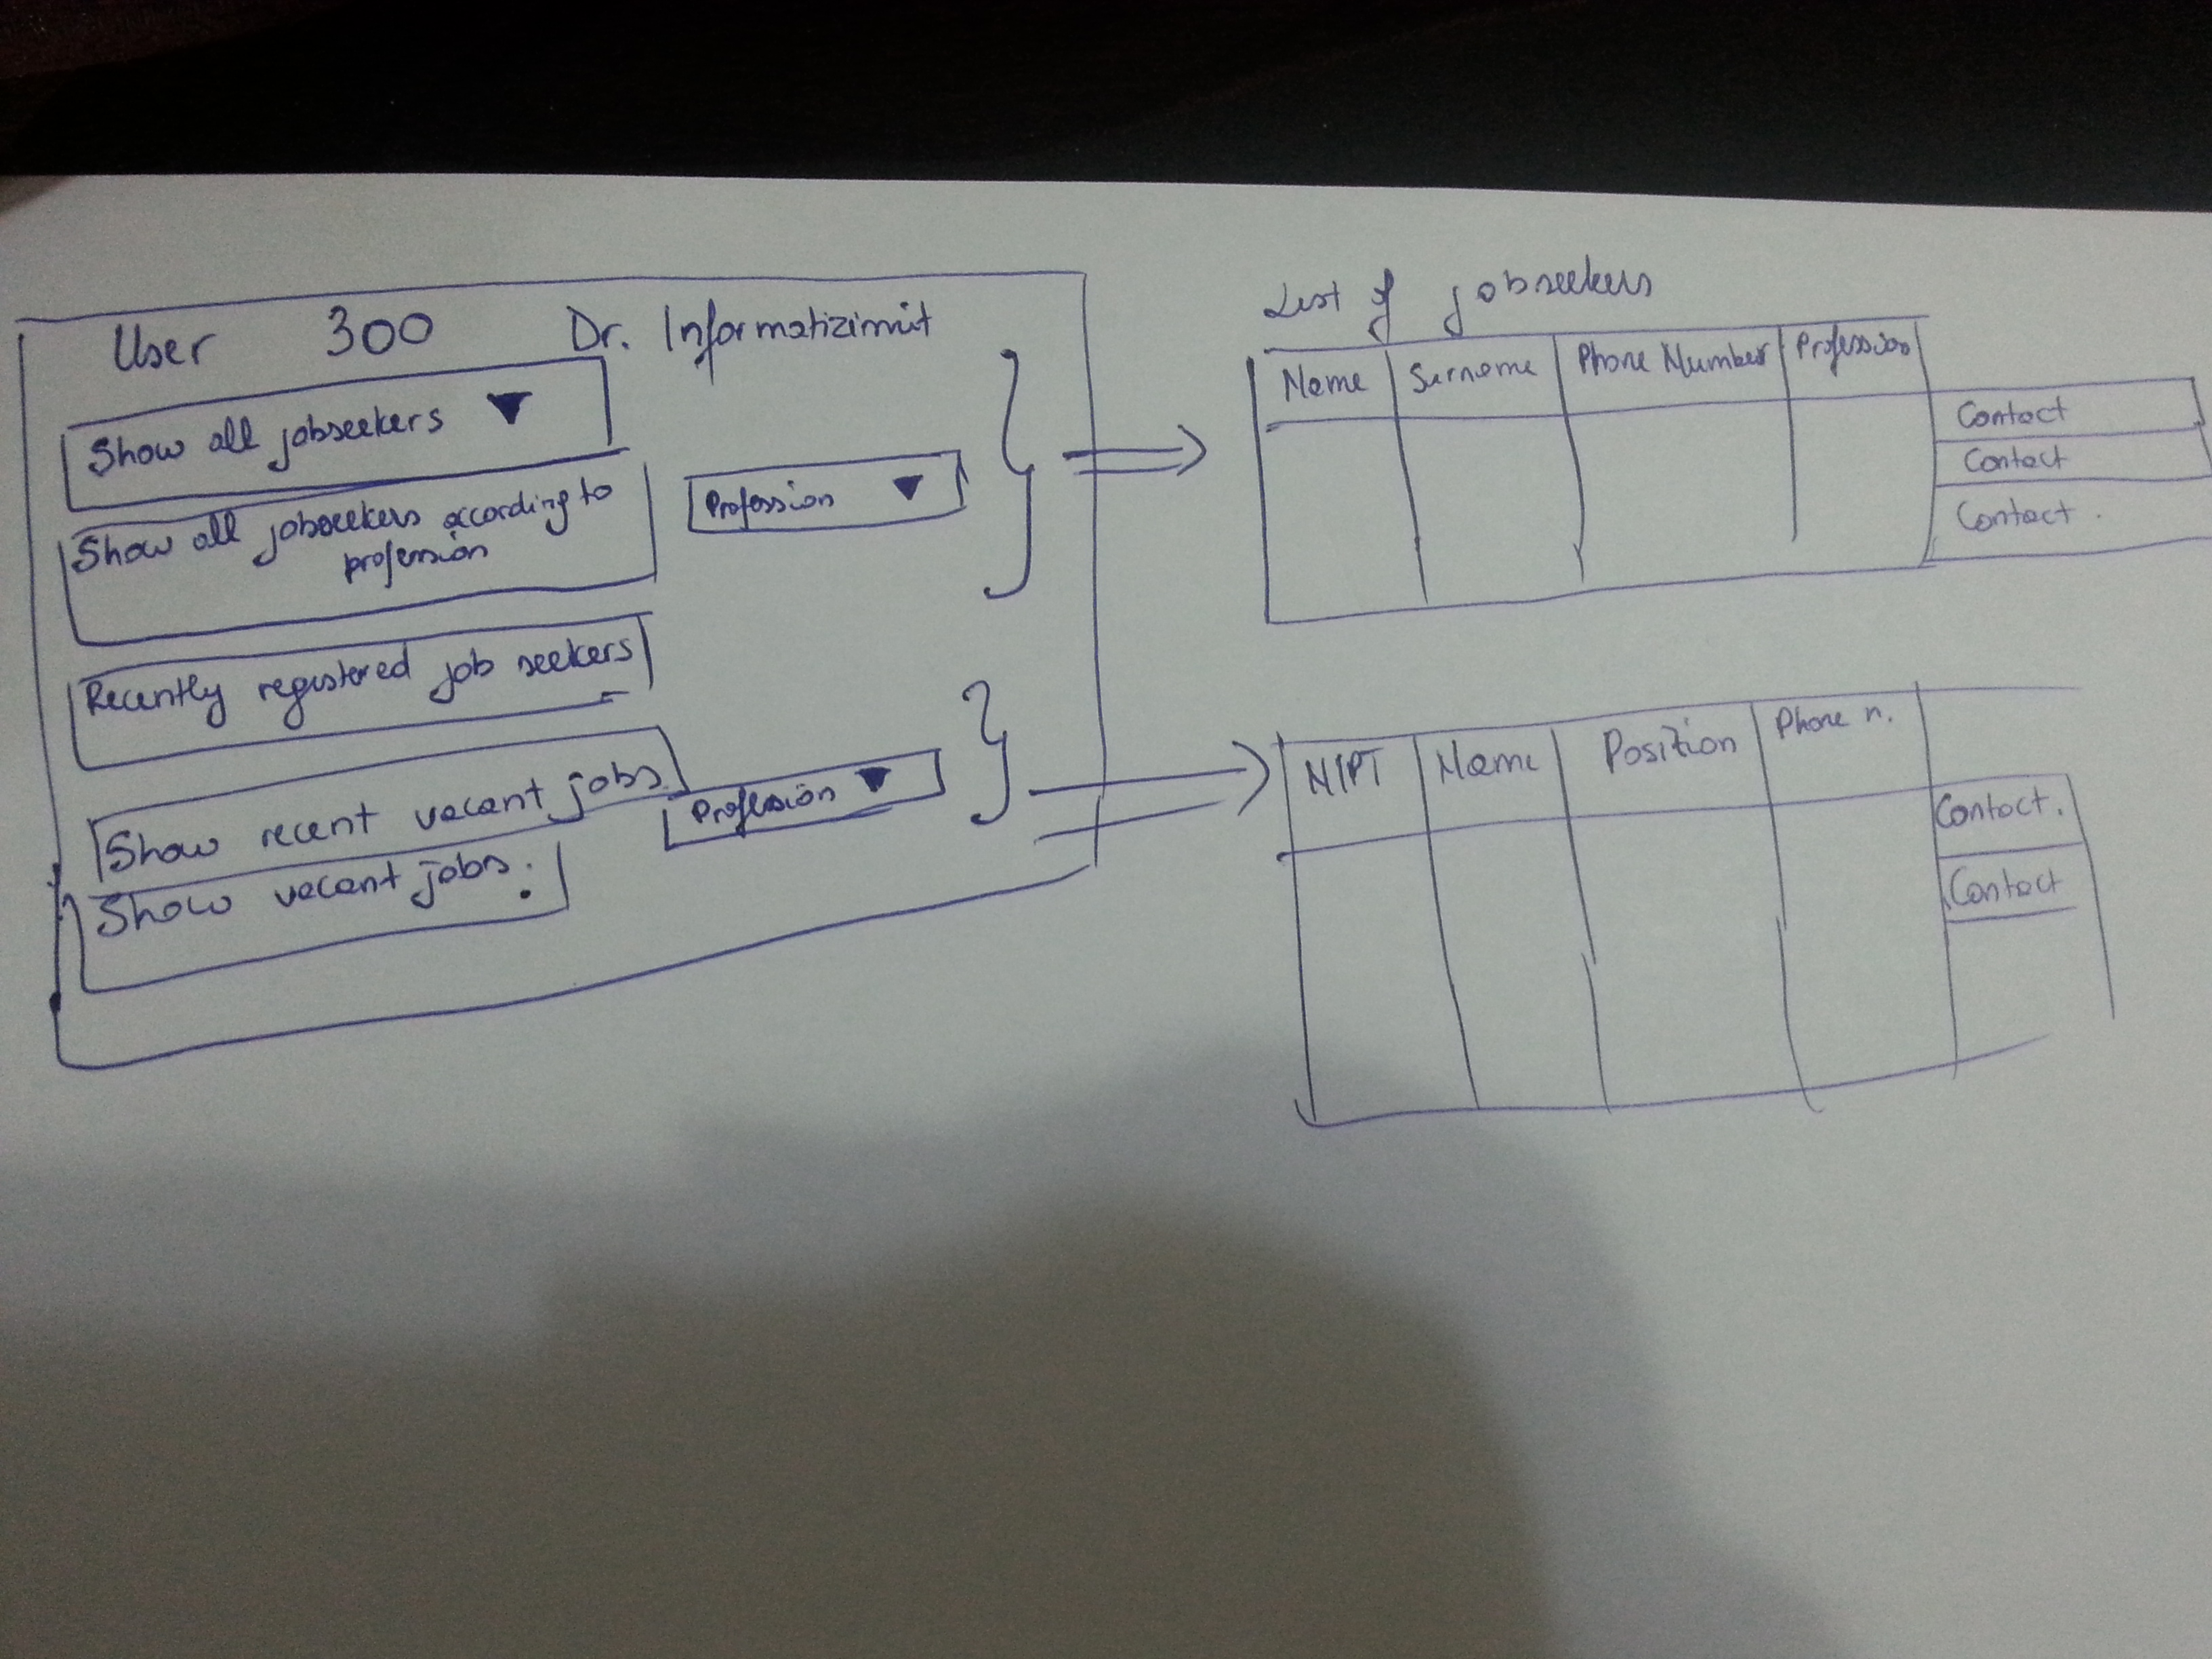 User 300 Dr. Informatizimit
Show all jobseekers
Show all jobseekers according to
profession
Profession
Recently registered job seekers
Show recent vacant jobs
Profession
Show vacant jobs.
List of jobseekers
Name Surname Phone Number Profession
Contact
Contact
Contact.
NIPT Name Position Phone n.
Contact.
Contact